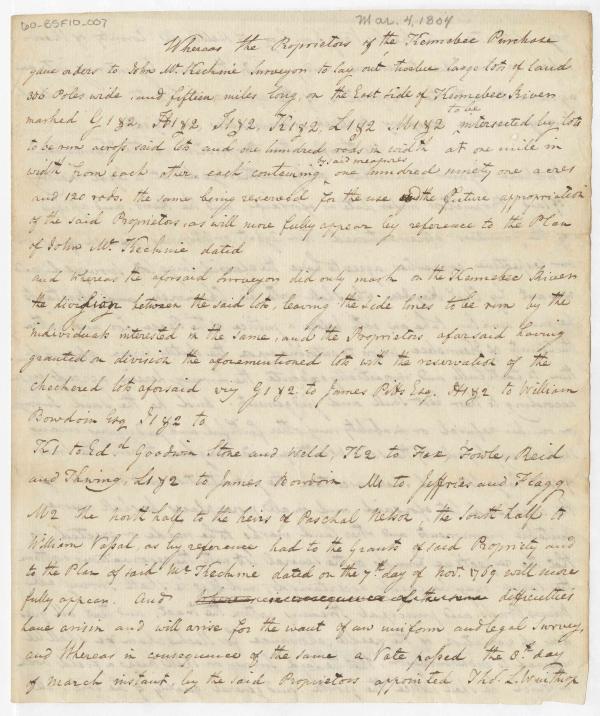 60-ESF10_007
Mar. 4, 1804
Whereas the Proprietors of the Kennebec Purchase
gave orders to John Mc. Kechnie Surveyor to lay out twelve large lots of land
306 Poles wide, and fifteen miles long, on the East side of Kennebec River
to be
marked G 1 & 2. H 1 & 2, I 1 & 2. K 1 & 2, L 1 & 2 M 1 & 2 intersected by lots
to be run across said lots and one hundred rods in width at one mile in
by said measures
width from each other, each conteining one hundred ninety one acres
and 120 rods, the same being reserved for the use and the future appropriation
of the said Proprietors, as will more fully appear by reference to the Plan
of John Mc. Kechnie dated
and whereas the aforsaid Surveyor did only mark on the Kennebec River
the division between the said lots, leaving the side lines to be run by the
individuals interested in the same, and the Proprietors aforsaid having
granted on division the aforementioned lots with the reservation of the
checkered lots aforsaid viz G 1 & 2 to James Pitts Esq. H 1 & 2 to William
Bowdoin Esq I 1 & 2 to
K 1 to Edd. Goodwin Stone and Weld, K 2 to Fox, Fowle, Reid
and Thwing, L 1 & 2 to James Bowdoin M 1 to Jeffries and Flagg
M 2 the north half to the heirs of Paschal Nelson, the South half to
William Vassal as by reference had to the Grants of said Propriety and
to the Plan of said Mc Kechnie dated on the 7th. day of Novr. 1769 will more
fully appear. And Whereas in consequence of the same difficulties
have arisin and will arise for the want of an uniform and legal Survey,
and Whereas in consequence of the same a Vote passed the 8th. day
of March instant, by the said Proprietors appointed Tho. L. Winthrop